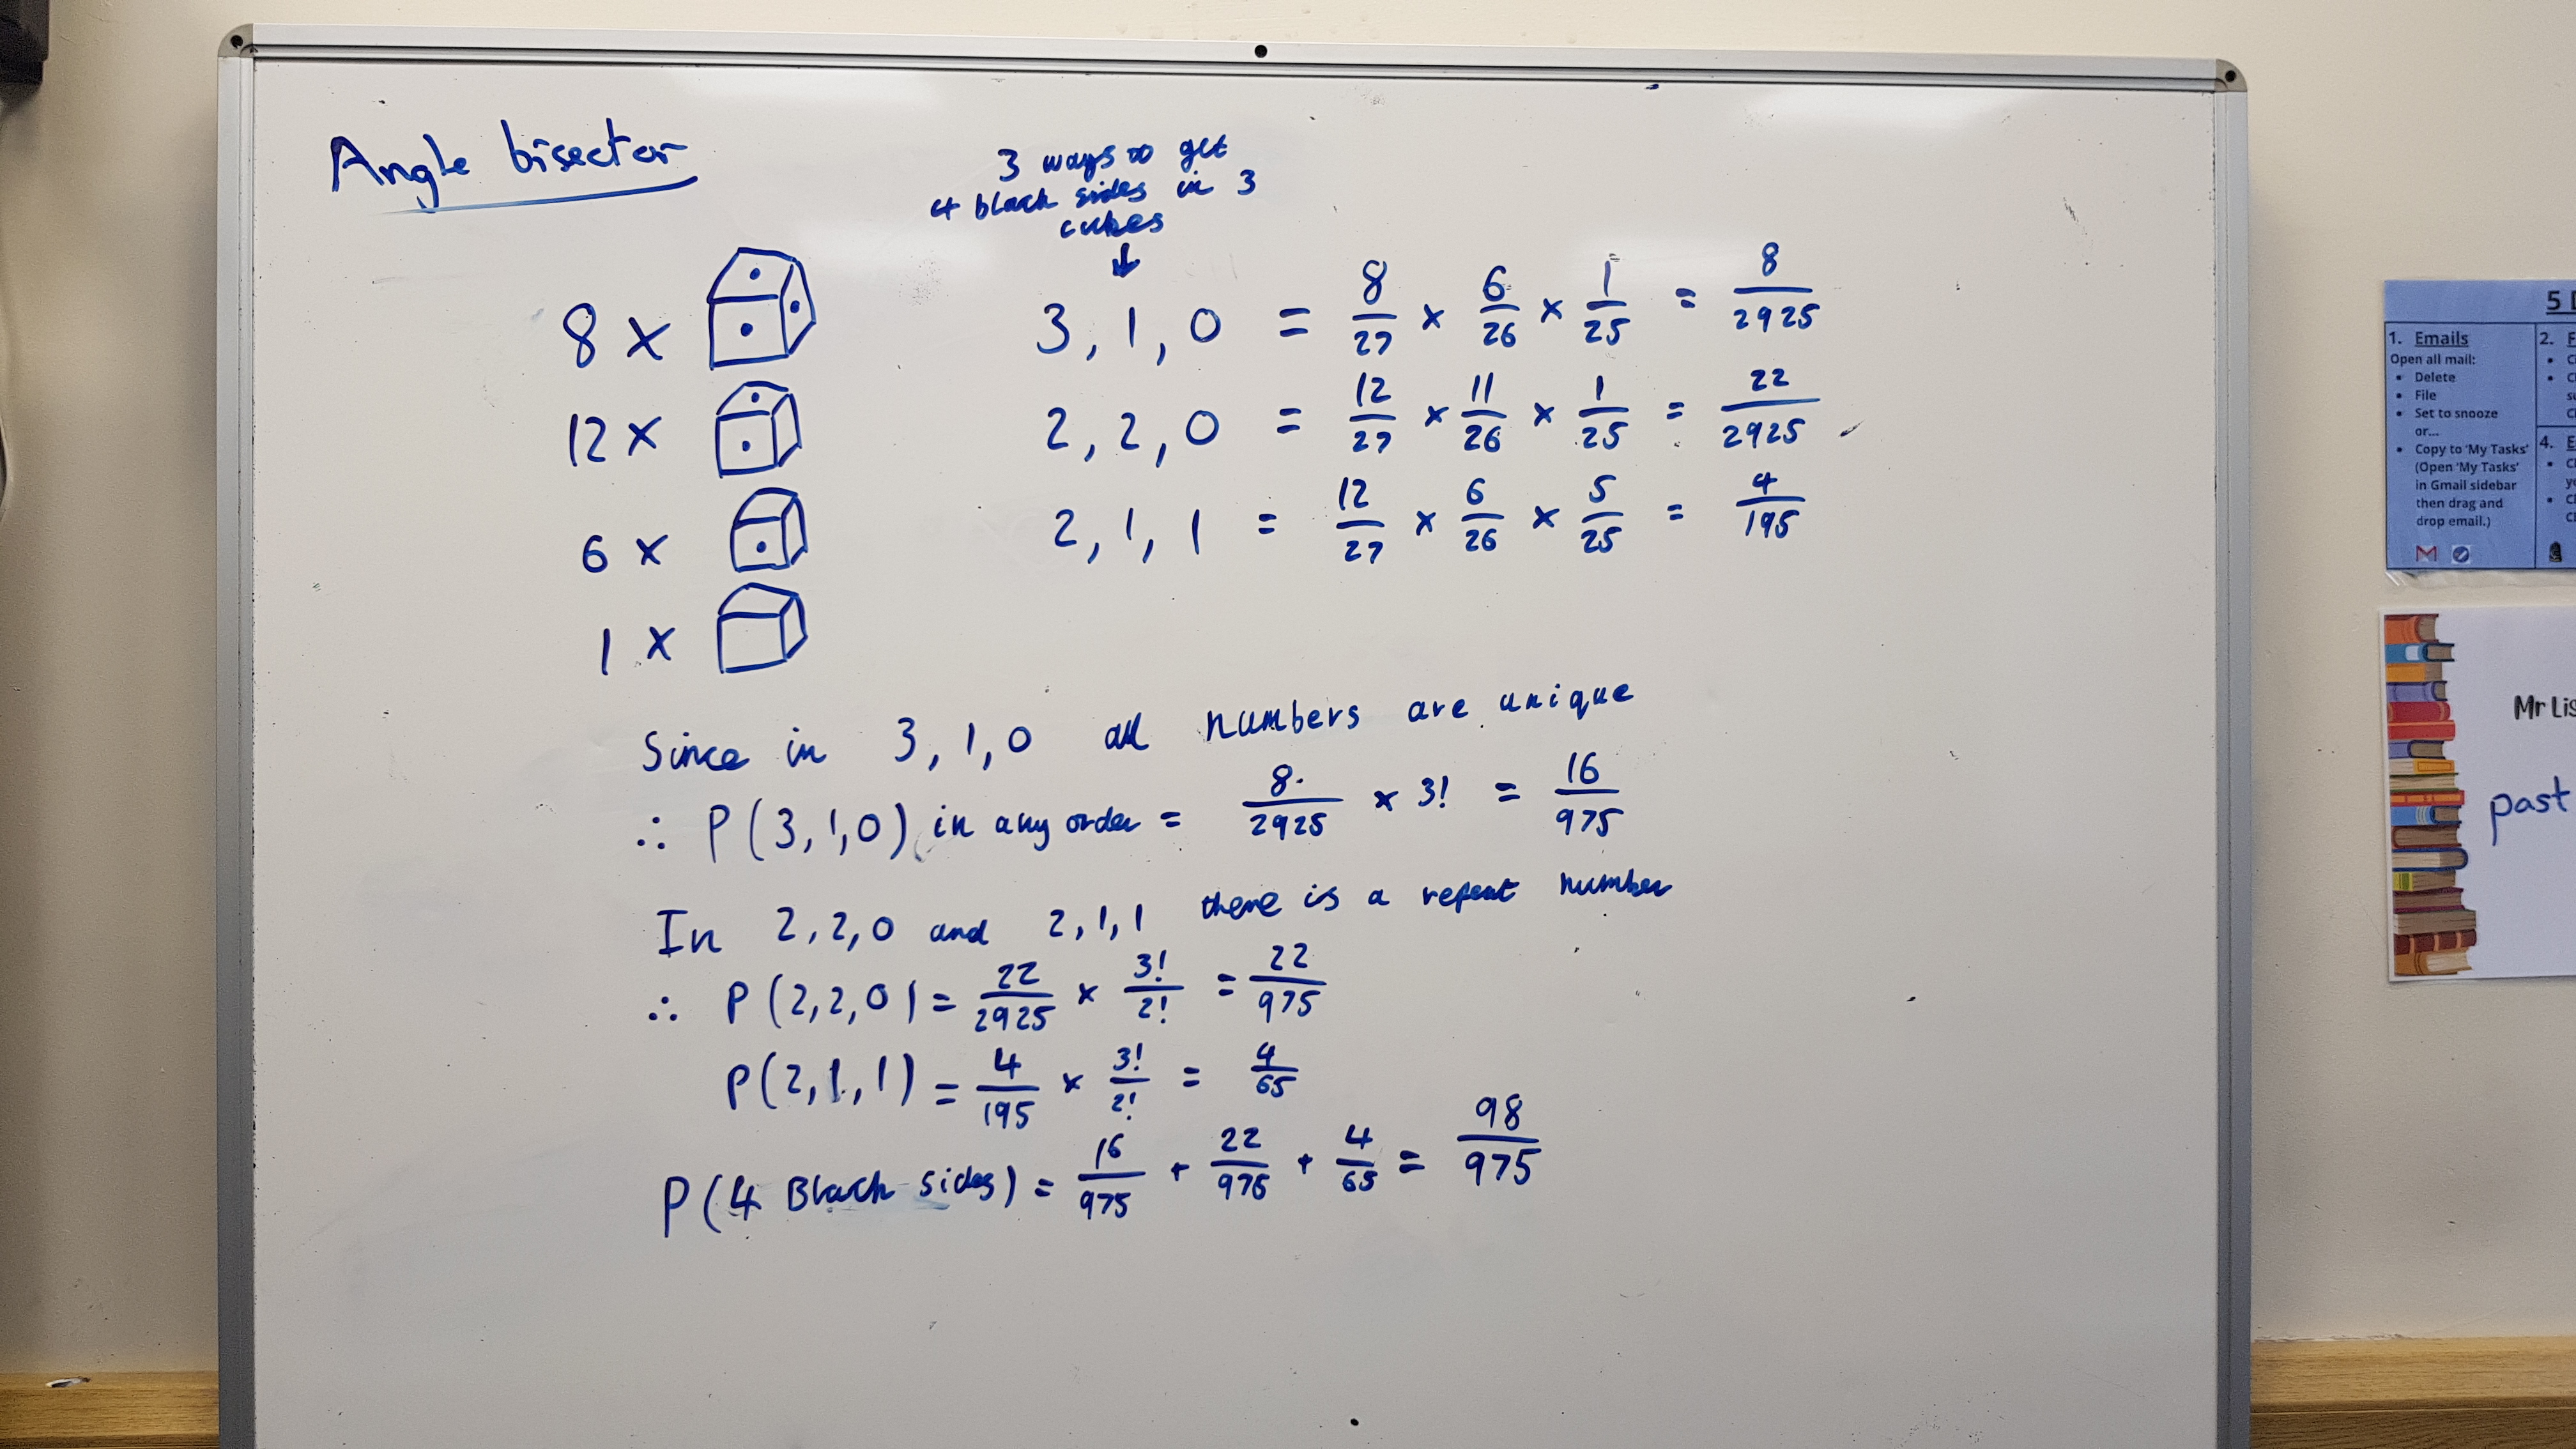 Angle bisector
3 ways to get
4 black sides in 3
cubes
↓
8 ×
12 ×
6 ×
1 ×
3, 1, 0 = 8/27 × 6/26 × 1/25 = 8/2925
2, 2, 0 = 12/27 × 11/26 × 1/25 = 22/2925
2, 1, 1 = 12/27 × 6/26 × 5/25 = 4/195
Since in 3, 1, 0 all numbers are unique
∴ P(3, 1, 0) in any order = 8/2925 × 3! = 16/975
In 2, 2, 0 and 2, 1, 1 there is a repeat number
∴ P(2, 2, 0) = 22/2925 × 3!/2! = 22/975
P(2, 1, 1) = 4/195 × 3!/2! = 4/65
P(4 Black sides) = 16/975 + 22/975 + 4/65 = 98/975
5
1. Emails
Open all mail:
• Delete
• File
• Set to snooze
or...
• Copy to 'My Tasks'
(Open 'My Tasks'
in Gmail sidebar
then drag and
drop email.)
2.
4.
Mr
past